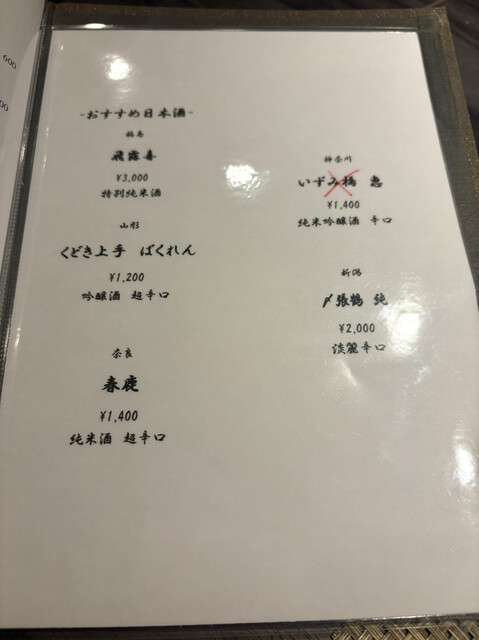 600
00
-おすすめ日本酒-
福島
飛露喜
¥3,000
特別純米酒
山形
くどき上手 ばくれん
¥1,200
吟醸酒 超辛口
奈良
春鹿
¥1,400
純米酒 超辛口
神奈川
いずみ橋 恵
¥1,400
純米吟醸酒 辛口
新潟
〆張鶴 純
¥2,000
淡麗辛口